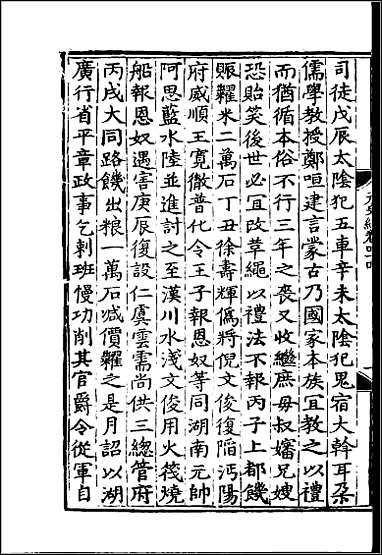 司徒戊辰太陰犯五車辛未太陰犯鬼宿大斡耳朶
儒學教授鄭咺建言蒙古乃國家本族宜教之以禮
而猶循本俗不行三年之喪又收繼庶母叔嬸兄嫂
恐貽笑後世必宜改革繩以禮法不報丙子上都饑
賑糶米二萬石丁丑徐壽輝僞將倪文俊復陷沔陽
府威順王寛徹普化令王子報恩奴等同湖南元帥
阿思藍水陸並進討之至漢川水淺文俊用火筏燒
船報恩奴遇害庚辰復設仁虞雲需尚供三總管府
丙戌大同路饑出粮一萬石減價糶之是月詔以湖
廣行省平章政事乞剌班慢功削其官爵令從軍自